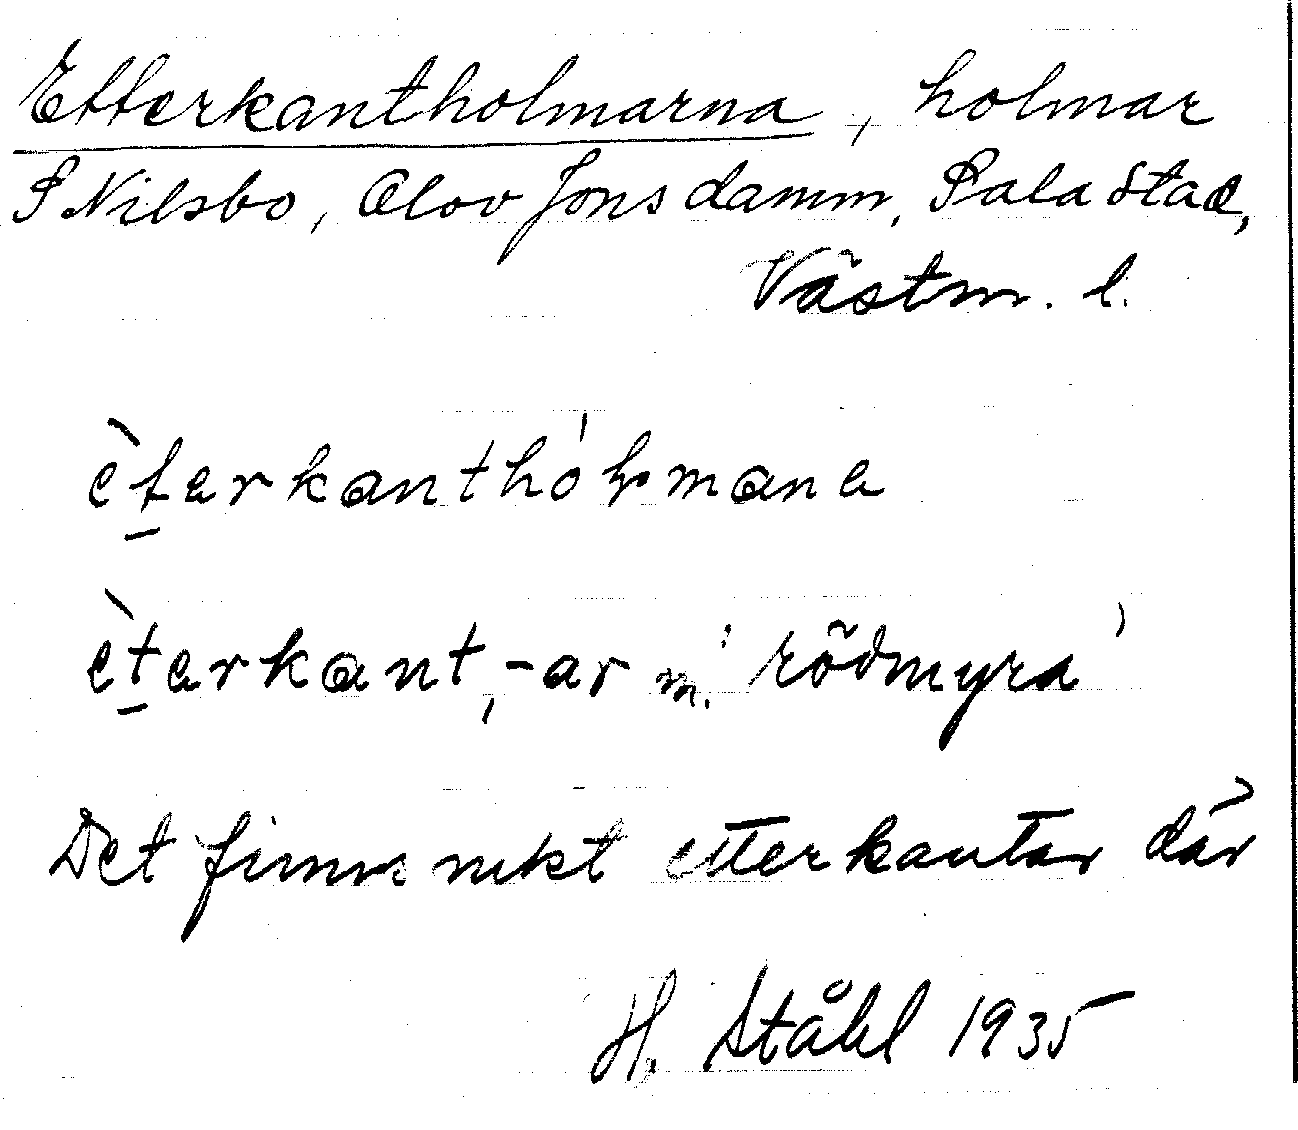 Etterkantholmarna, holmar
S Nilsbo, Olov Jons damm, Sala stad,
Västm. l.
èt̲erkanthól̥mana
èt̲erkant, -ar m. 'rödmyra'
Det finns rukt etterkantar där
H. Ståhl 1935